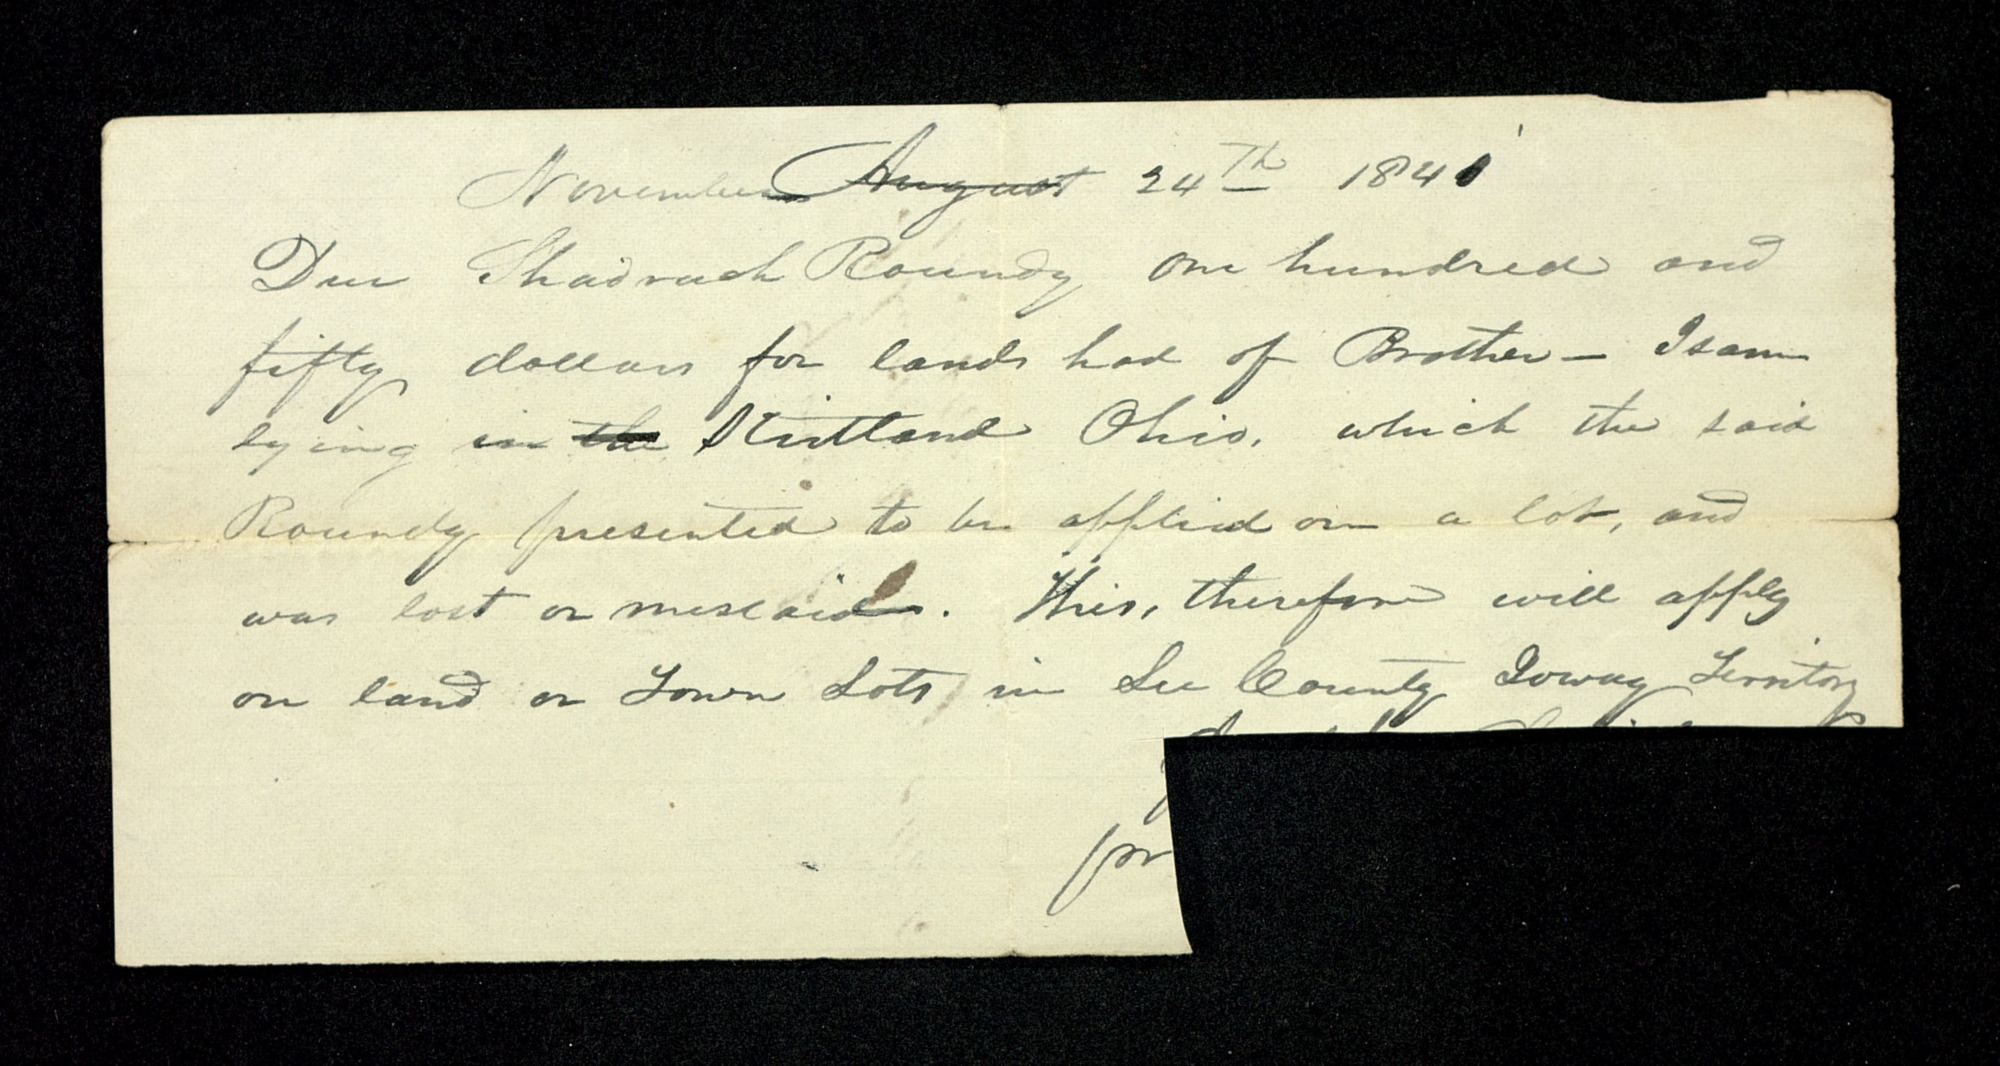 November August 24Th 1841
Due Shadrach Roundy one hundred and
fifty dollars for lands had of Brother – Isam
lying in the Kirtland Ohio, which the said
Roundy presented to be applied on a lot, and
was lost or mislaid. This, therefore will apply
on land or Town Lots in Lee County Ioway Territory
pr